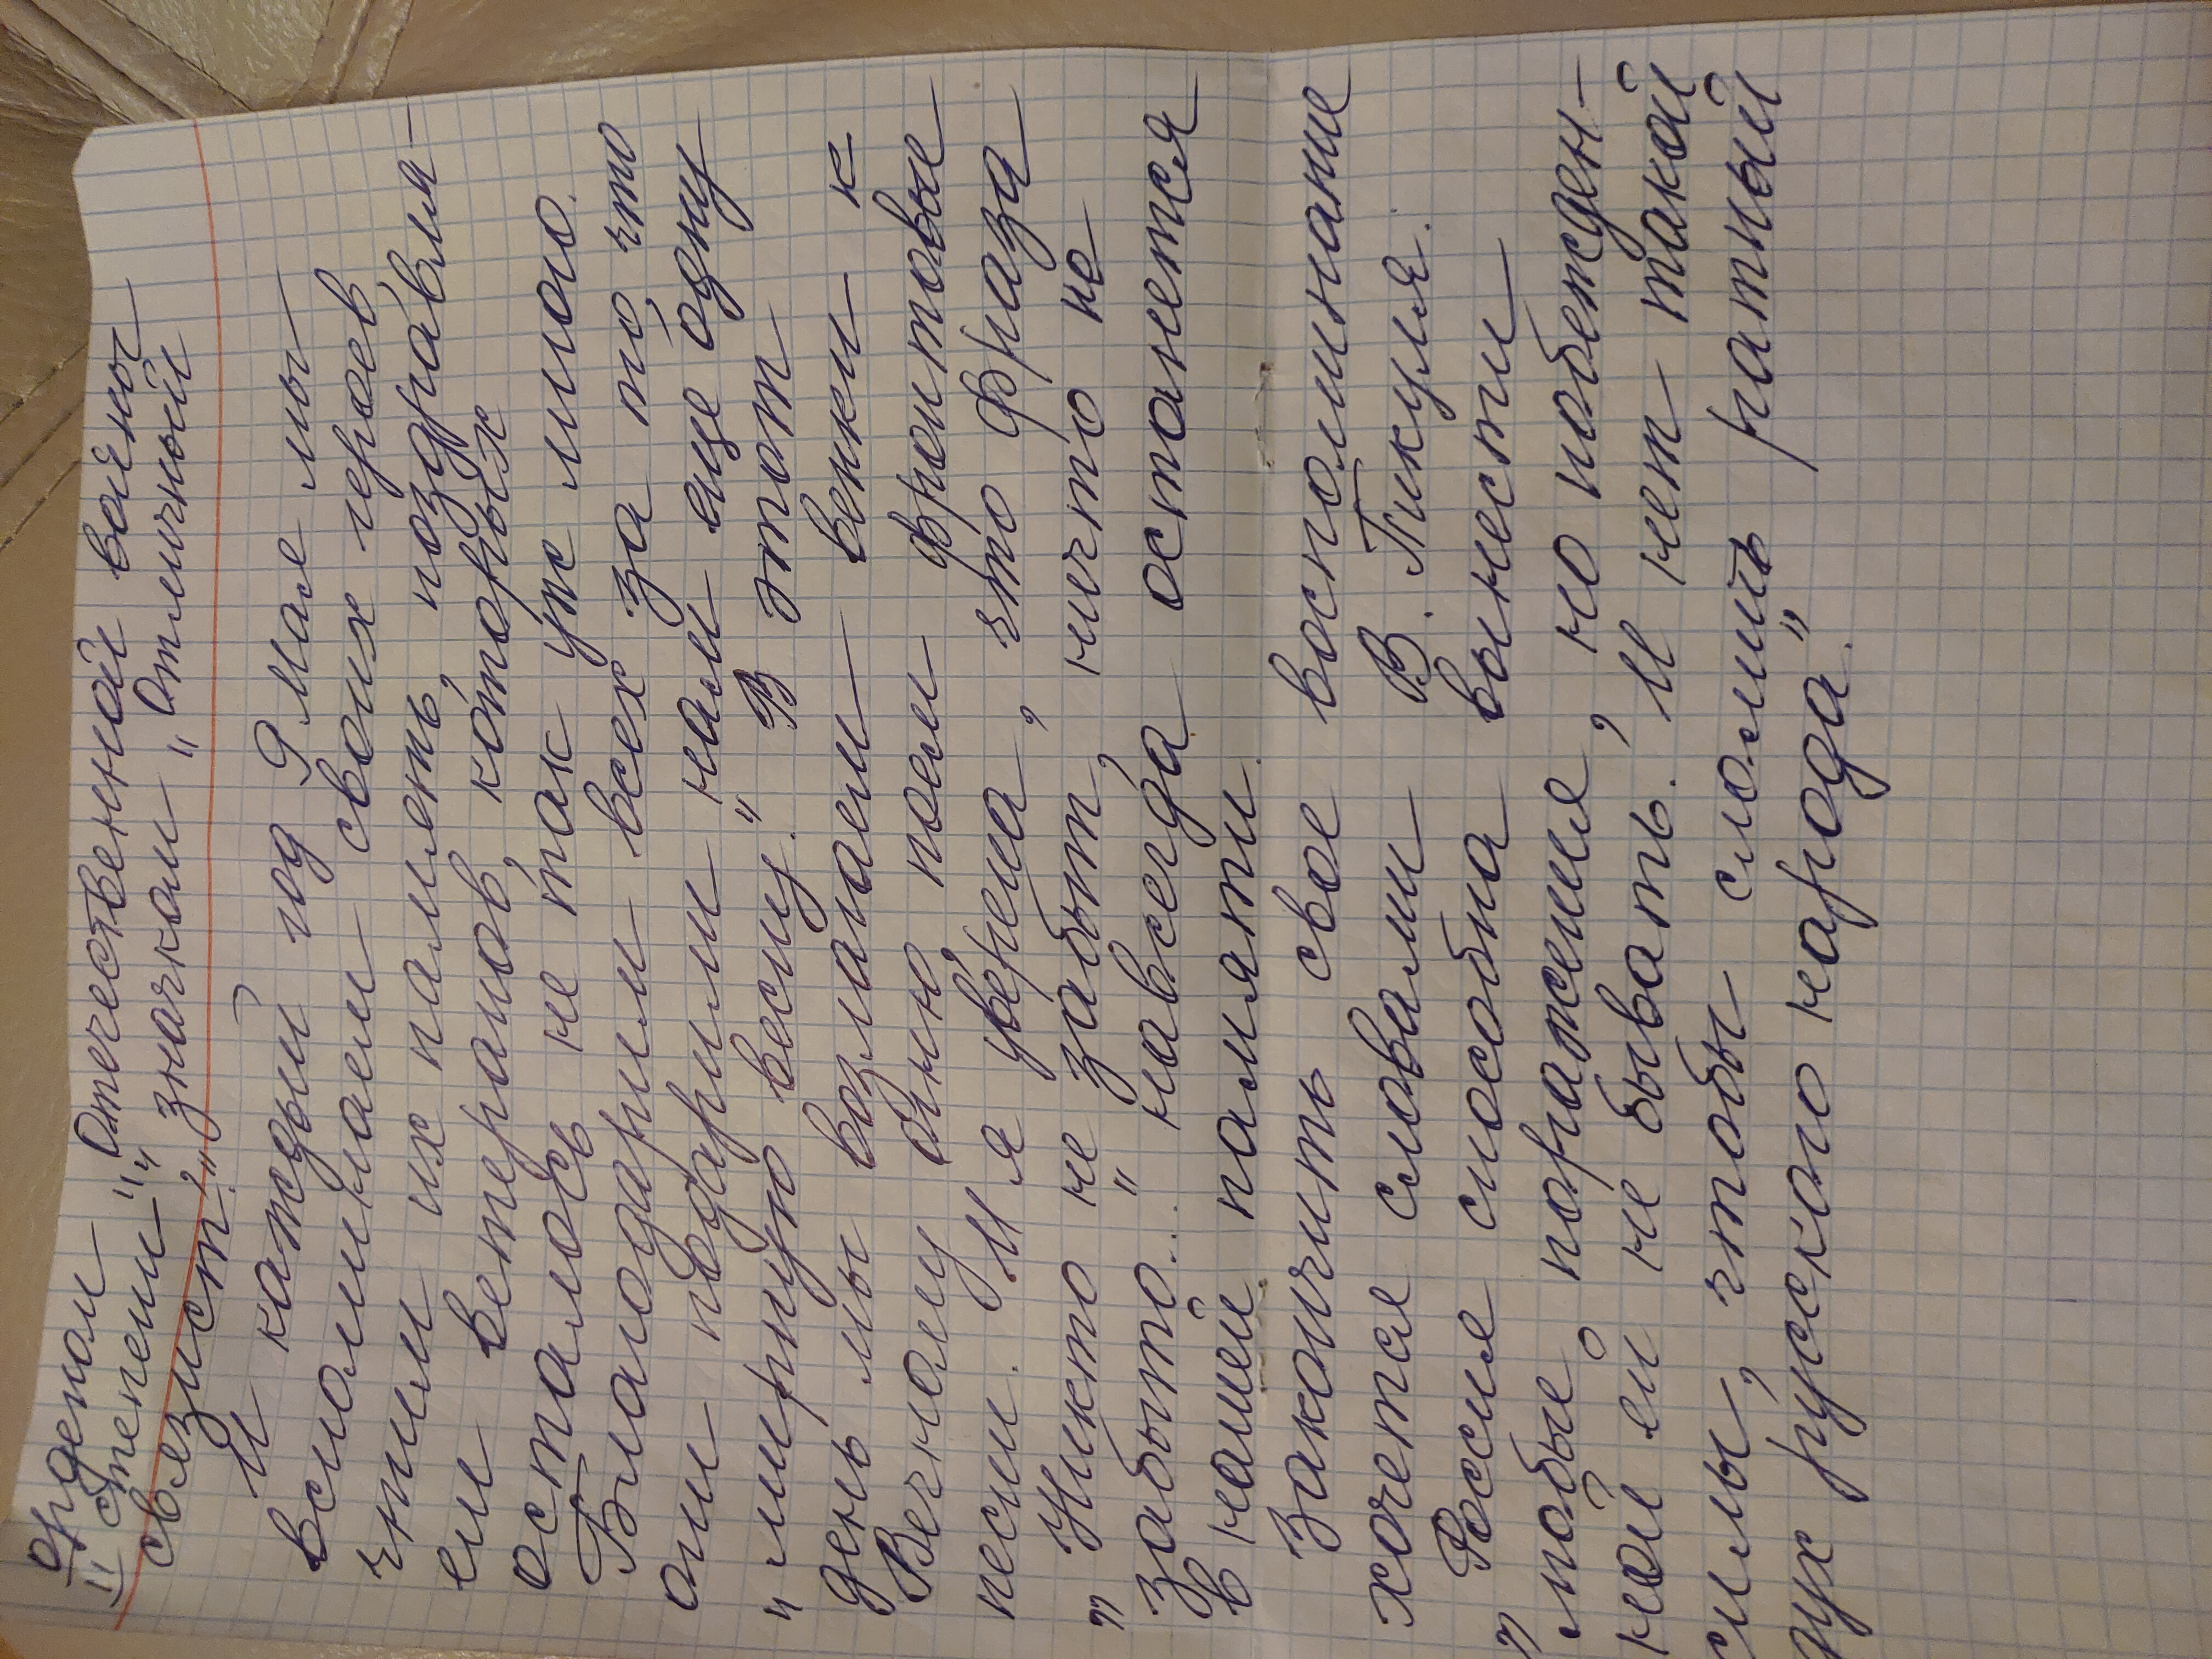 орденом
II степени", "Отечественной войны
связист." значком „Отличный
И каждый год 9 мая мы
вспоминаем своих героев,
чтим их память, поздравля-
ем ветеранов, которых
осталось не так уж много.
Благодарим всех за то, что
они подарили нам еще одну
„мирную весну." В этот
день мы возлагаем венки к
Вечному огню, поем фронтовые
песни. И я уверена, что фраза
„Никто не забыт, ничто не
забыто..." навсегда останется
в нашей памяти.
Закончить свое воспоминание
хочется словами В. Пикуля:
„Россия способна вынести
любые поражения, но побежден-
ной ей не бывать. И нет такой
силы, чтобы сломить ратный
дух русского народа."